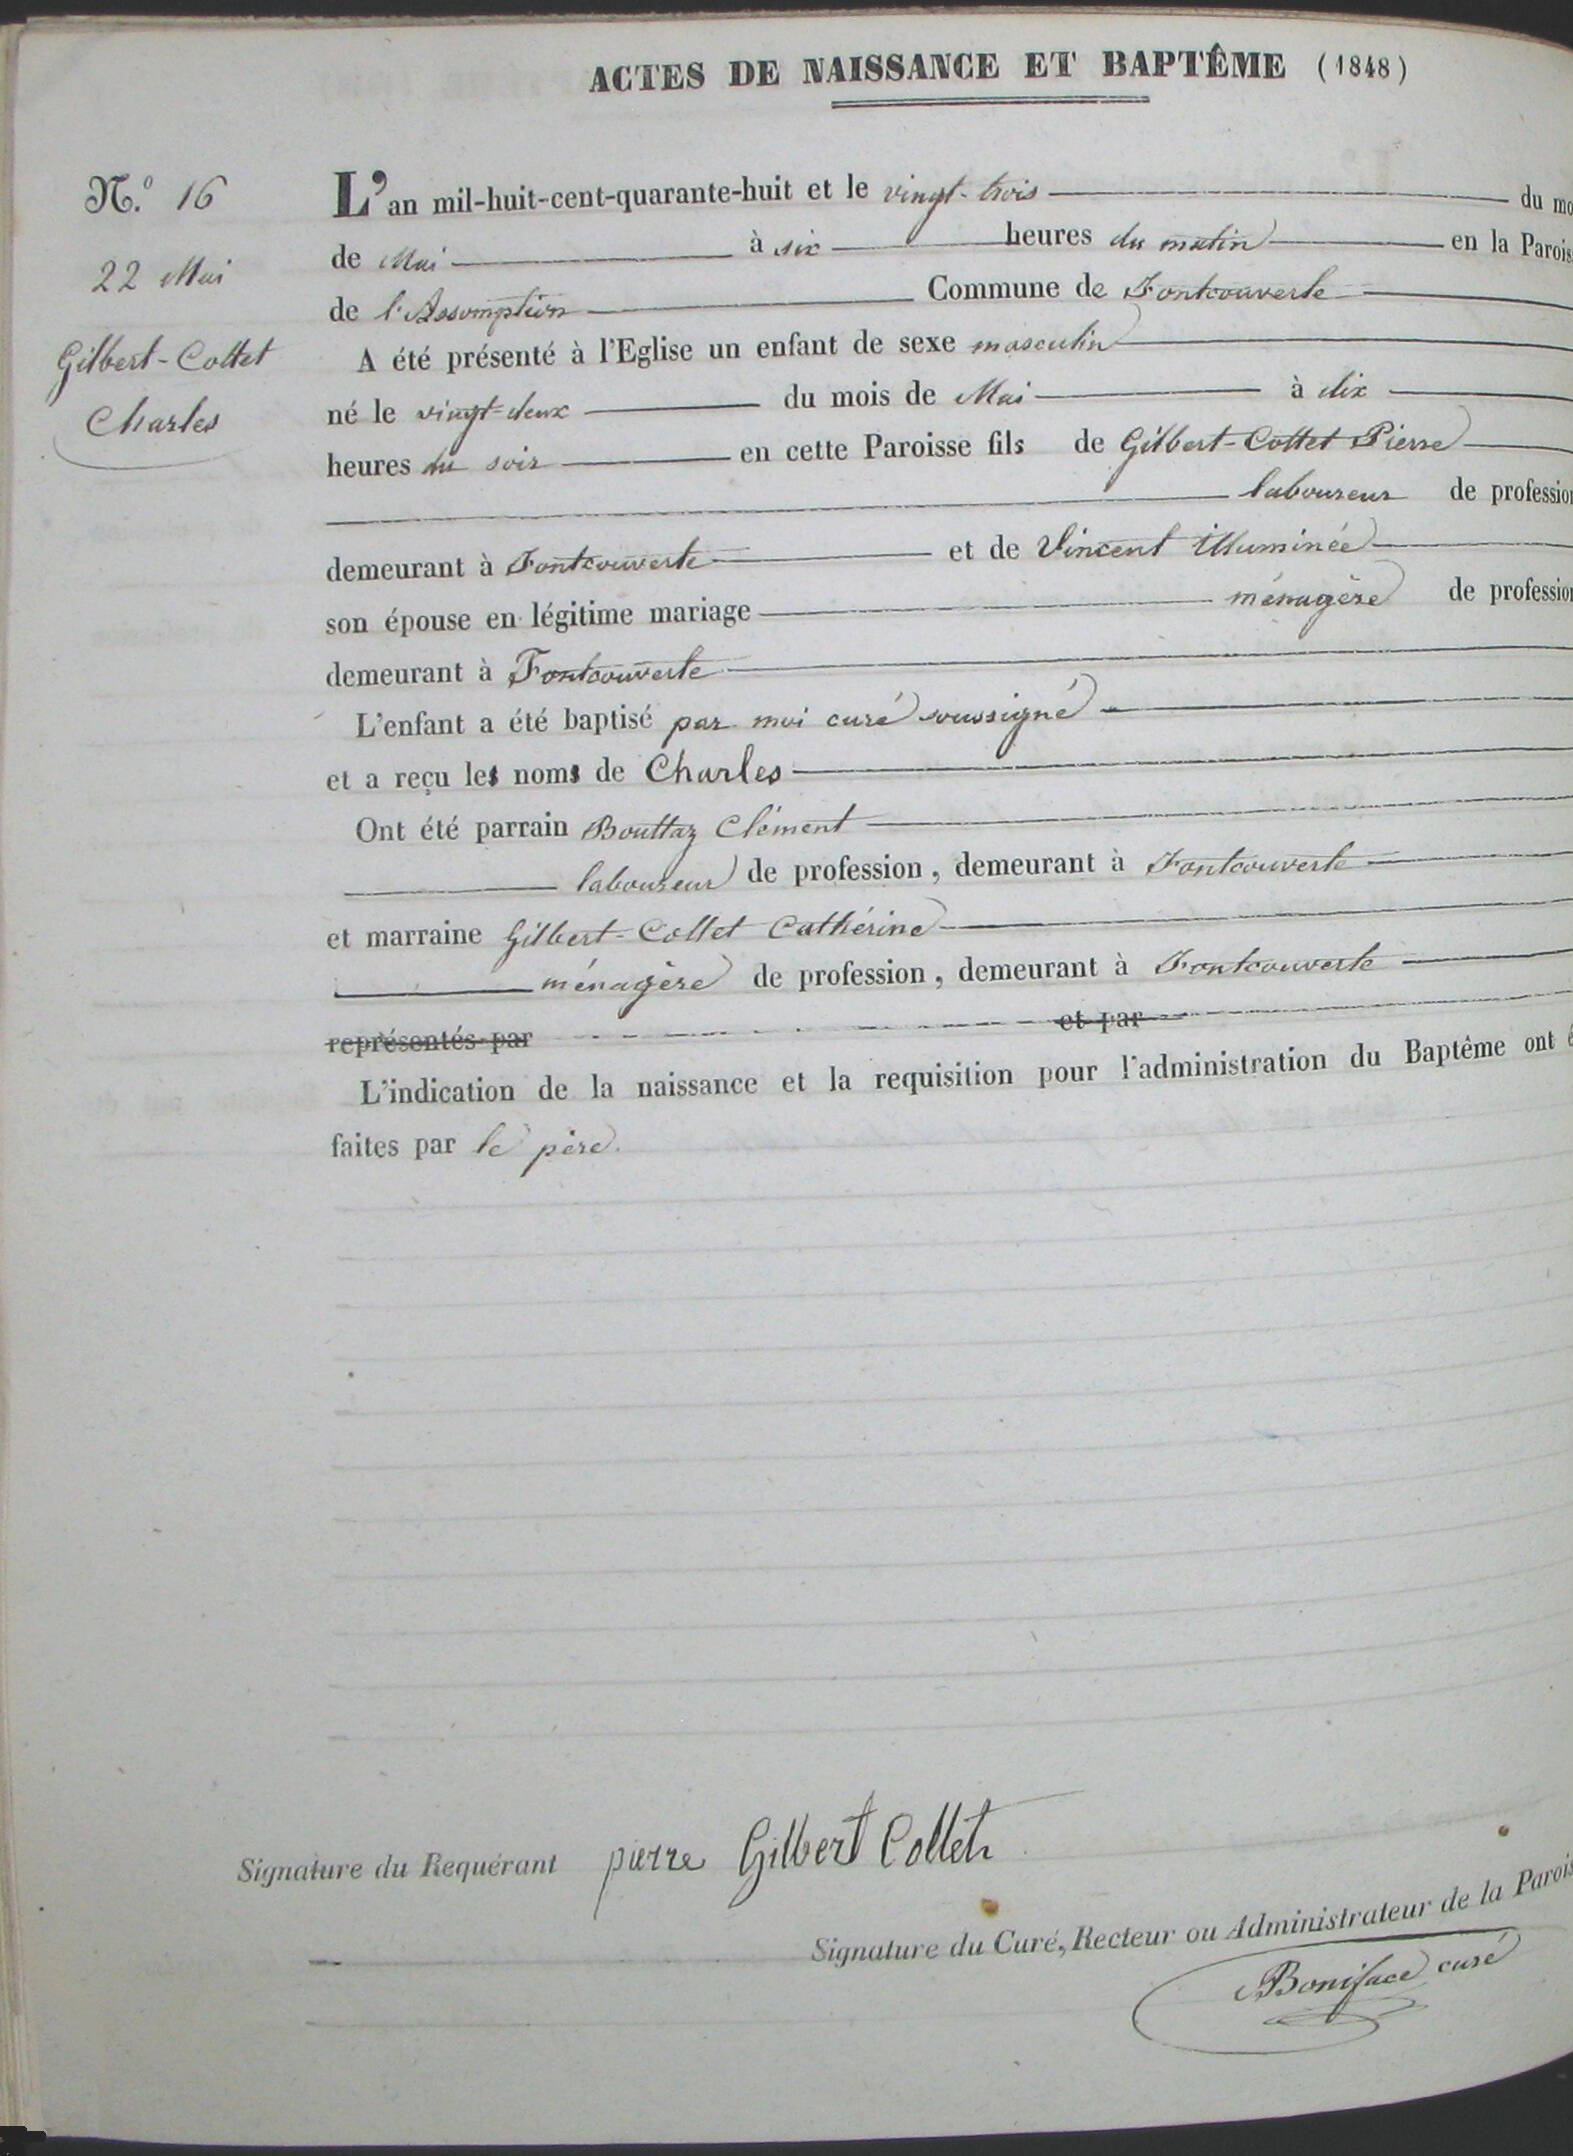 ACTES DE NAISSANCE ET BAPTÊME (1848)
N.º 16
22 Mai
Gilbert-Collet
Charles
L'an mil-huit-cent-quarante-huit et le vingt-trois du mo
de Mai à six heures du matin en la Parois
de l'Assomption Commune de Fontcouverte
A été présenté à l'Eglise un enfant de sexe masculin
né le vingt-deux du mois de Mai à dix
heures du soir en cette Paroisse fils de Gilbert-Collet Pierre
laboureur de profession
demeurant à Fontcouverte et de Vincent Illuminée
son épouse en légitime mariage ménagère de profession
demeurant à Fontcouverte
L'enfant a été baptisé par moi curé soussigné
et a reçu les noms de Charles
Ont été parrain Bouttaz Clément
laboureur de profession, demeurant à Fontcouverte
et marraine Gilbert-Collet Cathérine
ménagère de profession, demeurant à Fontcouverte
représentés par et par
L'indication de la naissance et la requisition pour l'administration du Baptême ont é
faites par le père.
Signature du Requérant pierre Gilbert Collet
Signature du Curé, Recteur ou Administrateur de la Parois
Boniface curé